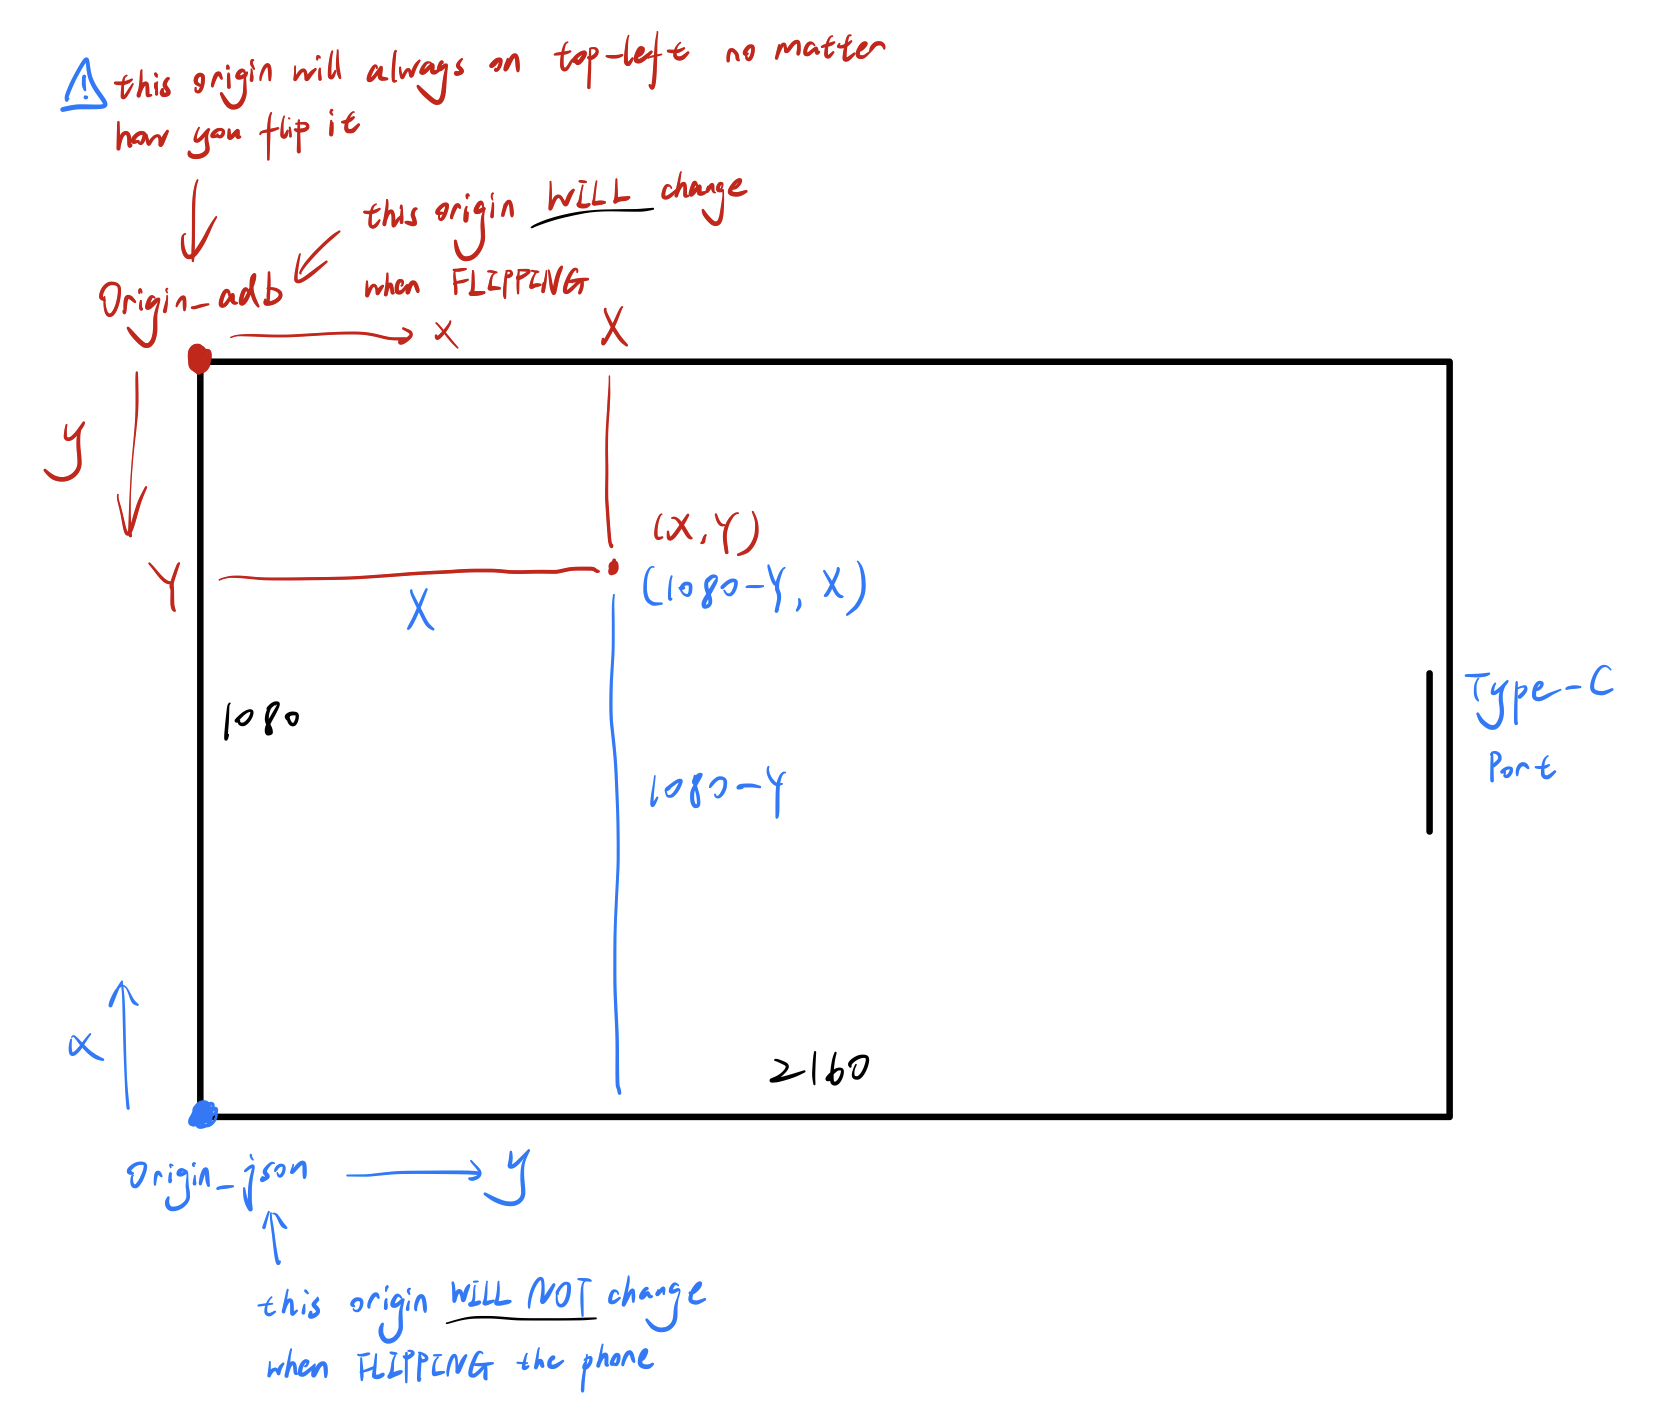 this origin will always on top-left no matter
how you flip it
this origin WILL change
when FLIPPING
Origin_adb
x
X
y
(X,Y)
Y
(1080-Y, X)
X
1080
Type-C
Port
1080-Y
x
2160
Origin_json
y
this origin WILL NOT change
when FLIPPING the phone